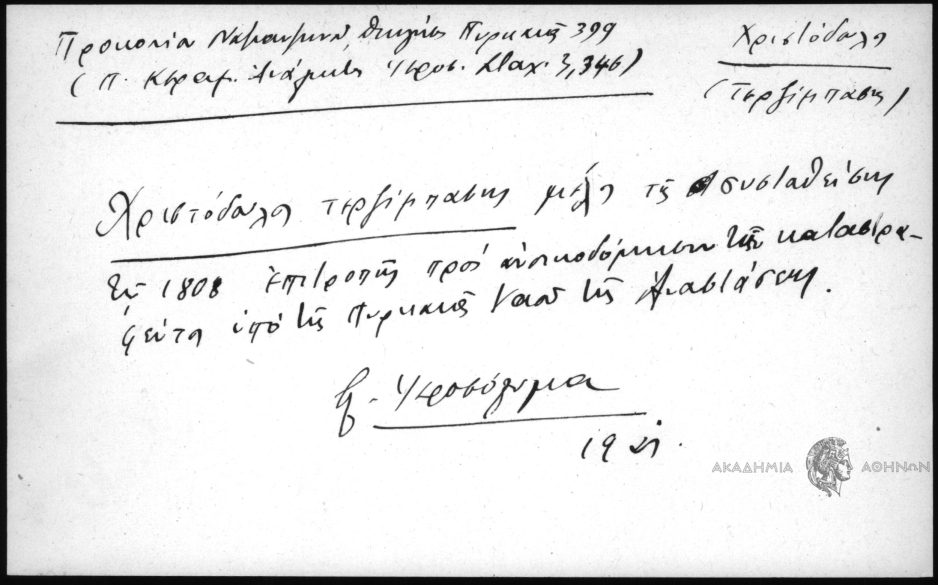 Προκοπίου Ναζιανζηνοῦ, διήγησις Πυρκαϊᾶς 399
(Π. Κεραμ. Ἀνάλεκτα Ἱεροσ. Σταχ. 3, 346)
Χριστόδουλος
(Τερζίμπασης)
Χριστόδουλος τερζίμπασης μέλος τῆς συσταθείσης
τῷ 1808 ἐπιτροπῆς πρὸς ἀνοικοδόμησιν τοῦ καταστρα-
φέντος ὑπὸ τῆς πυρκαϊᾶς Ναοῦ τῆς Ἀναστάσεως.
Ἱεροσόλυμα
1921.
ΑΚΑΔΗΜΙΑ ΑΘΗΝΩΝ